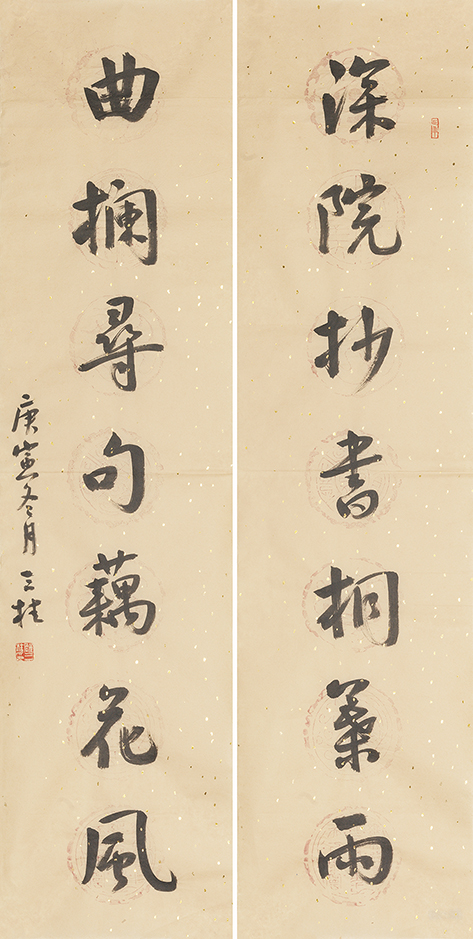 深院抄書桐葉雨
曲攔尋句藕花風
庚寅冬月 三桂